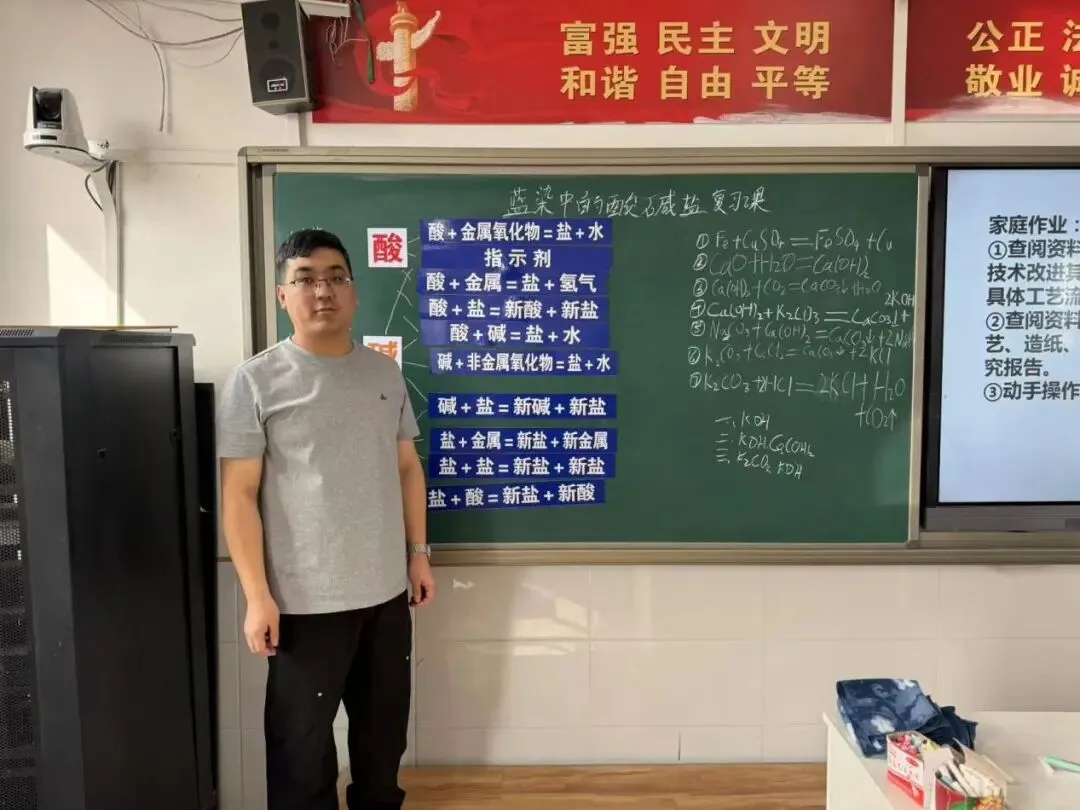 富强 民主 文明
和谐 自由 平等
公正 法
敬业 诚
蓝染中的酸碱盐复习课
酸
碱
酸+金属氧化物=盐+水
指示剂
酸+金属=盐+氢气
酸+盐=新酸+新盐
酸+碱=盐+水
碱+非金属氧化物=盐+水
碱+盐=新碱+新盐
盐+金属=新盐+新金属
盐+盐=新盐+新盐
盐+酸=新盐+新酸
①Fe+CuSO₄=FeSO₄+Cu
②CaO+H₂O=Ca(OH)₂
③Ca(OH)₂+CO₂=CaCO₃↓+H₂O
④Ca(OH)₂+K₂CO₃=CaCO₃↓+2KOH
⑤Na₂CO₃+Ca(OH)₂=CaCO₃↓+2NaOH
⑥K₂CO₃+CaCl₂=CaCO₃↓+2KCl
⑦K₂CO₃+2HCl=2KCl+H₂O
+CO₂↑
一、KOH
二、KOH Ca(OH)₂
三、K₂CO₃ KOH
家庭作业：
①查阅资料
技术改进其
具体工艺流
②查阅资料
艺、造纸、
究报告。
③动手操作